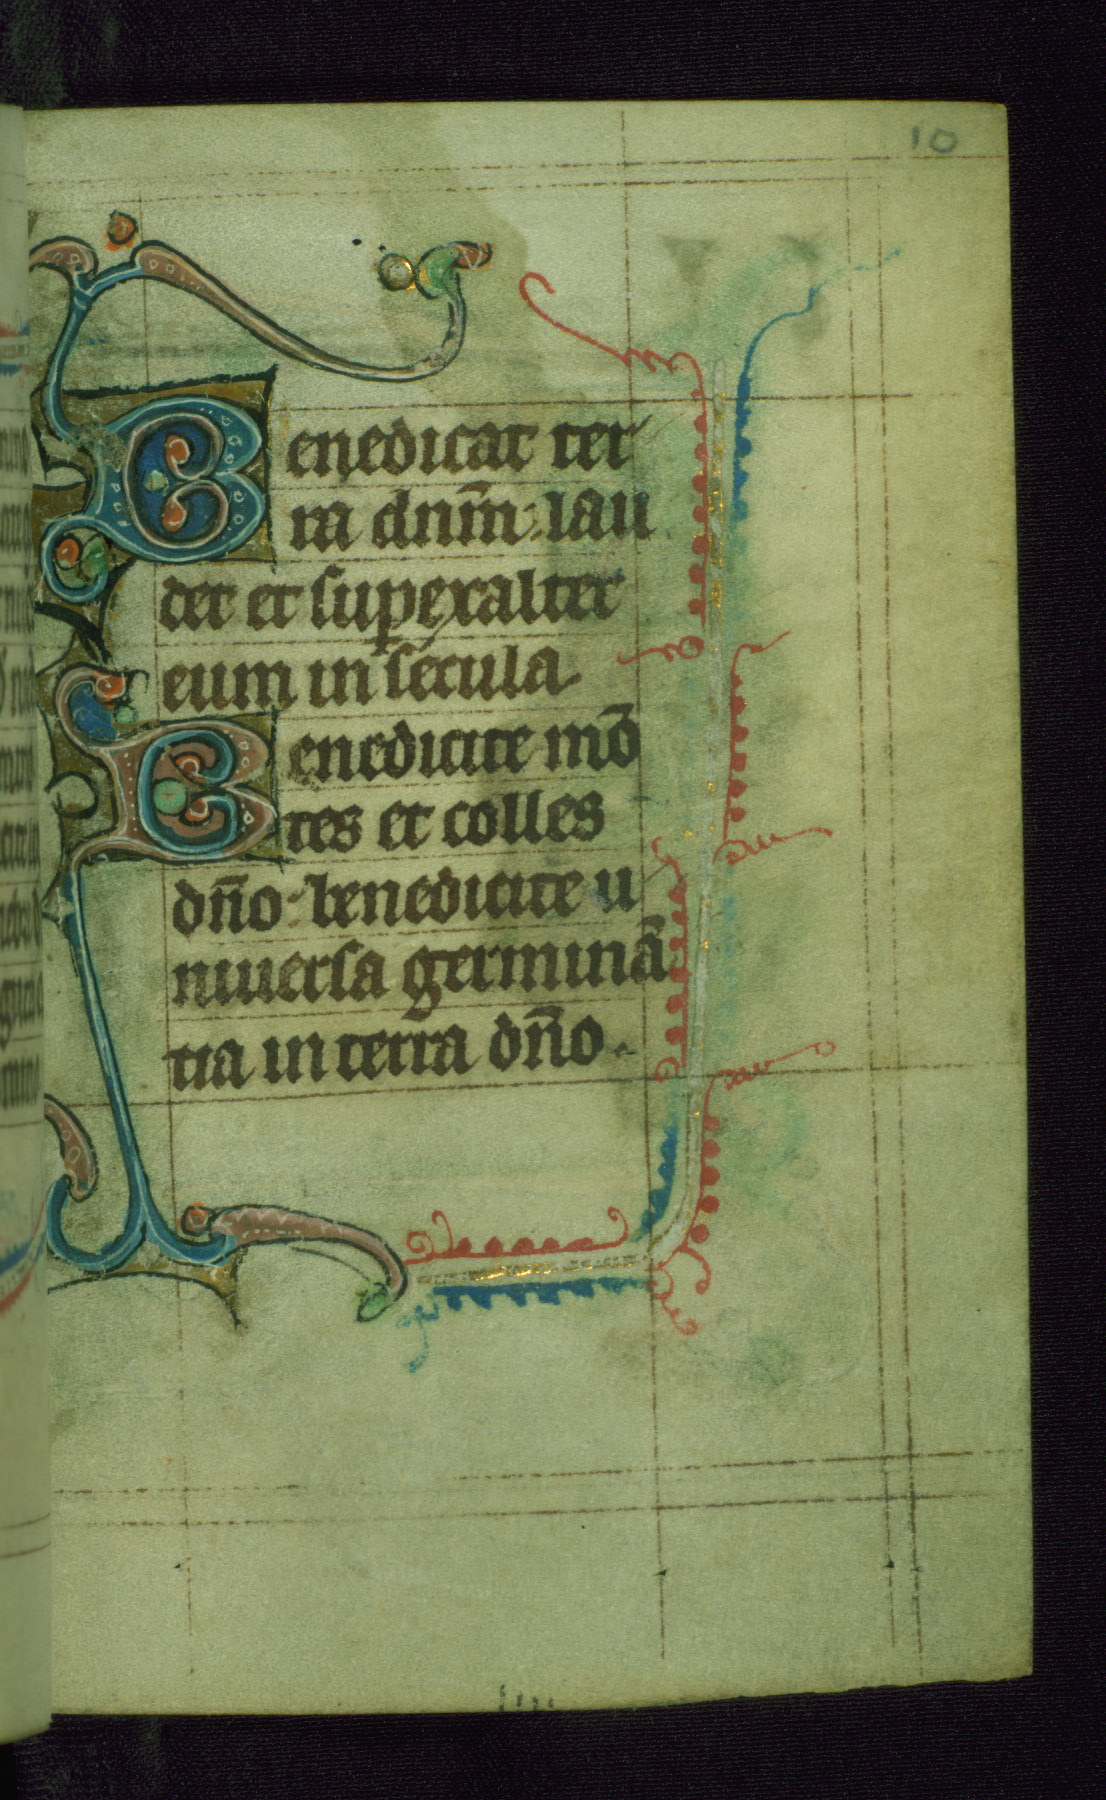 10
Benedicat ter
ra dnm̄: lau
det et superexaltet
eum in secula.
Benedicite mō
tes et colles
dn̄o: benedicite u
niuersa germinā
tia in terra dn̄o.